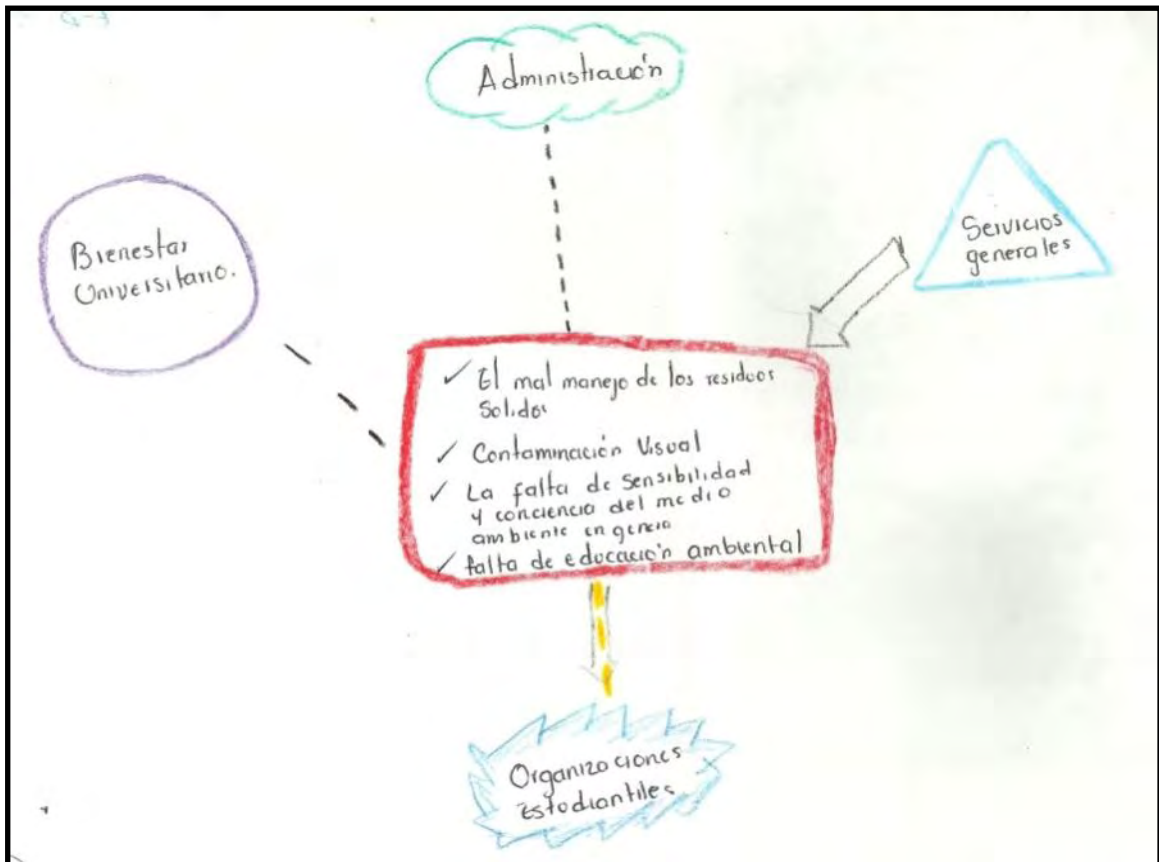 G-3
Administración
Bienestar
Universitario.
Servicios
generales
✓ El mal manejo de los residuos
Solidos
✓ Contaminación Visual
✓ La falta de sensibilidad
y conciencia del medio
ambiente en
✓ falta de educación ambiental
Organizaciones
Estudiantiles